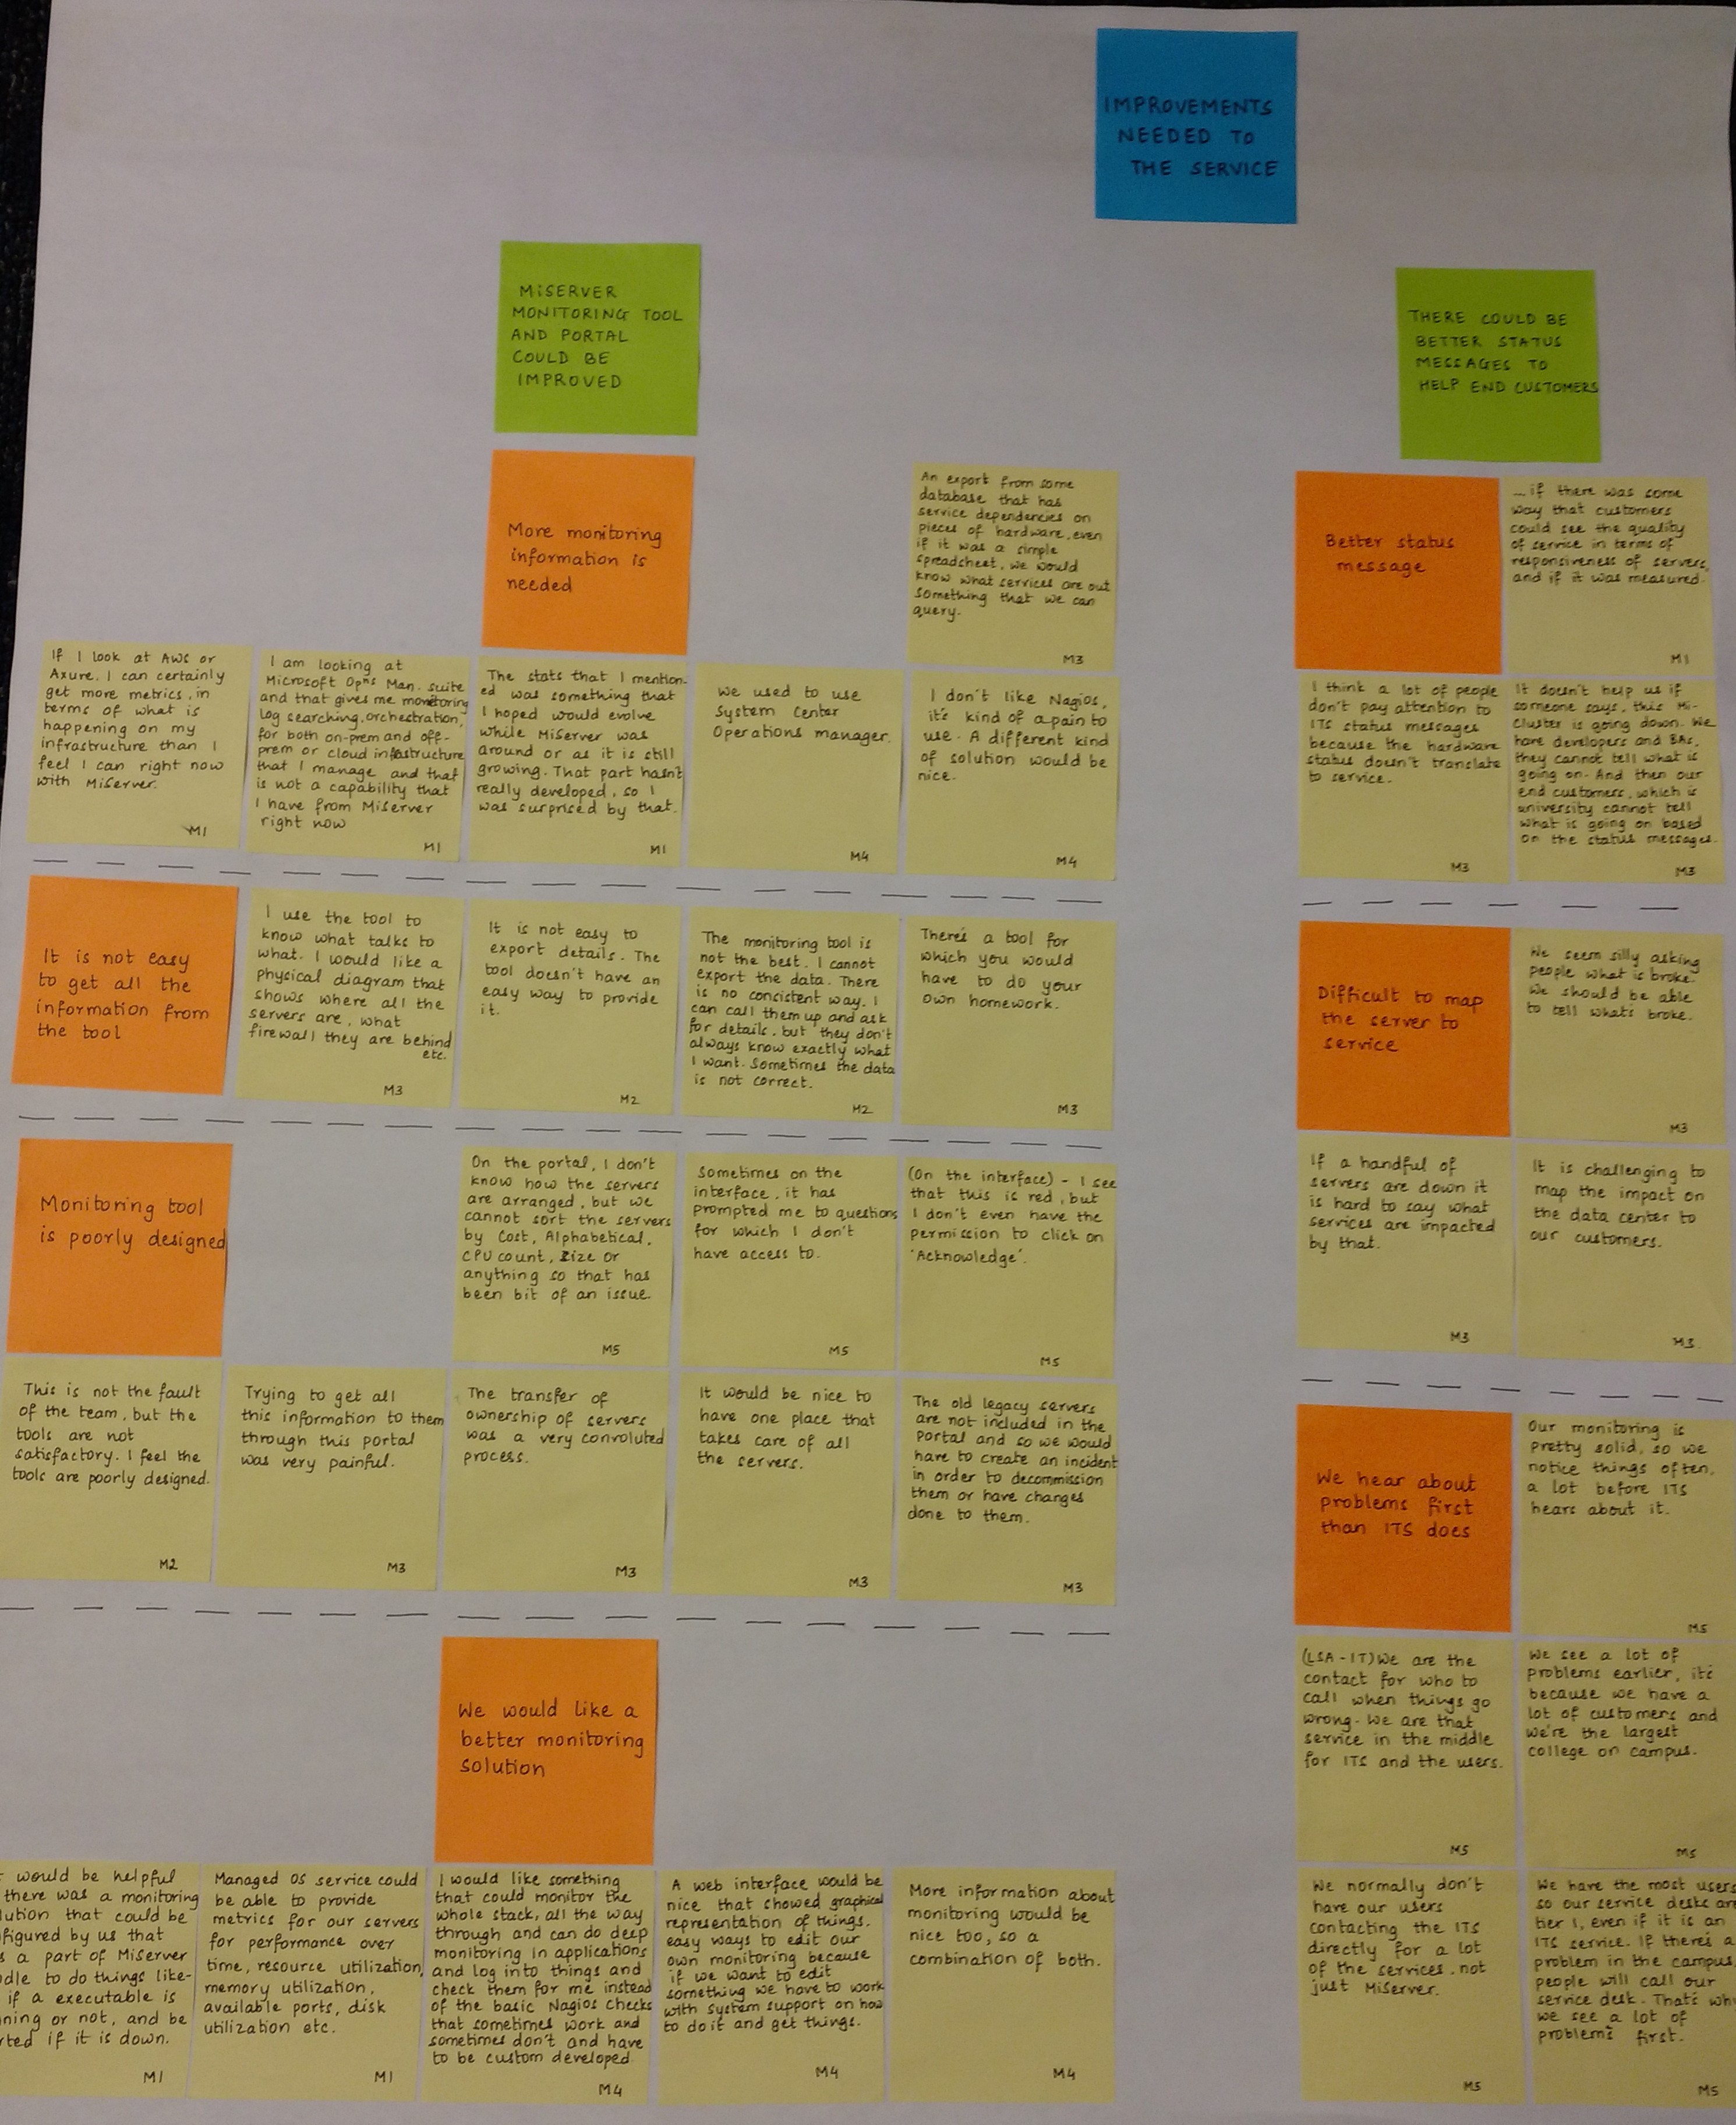 IMPROVEMENTS
NEEDED TO
THE SERVICE
MISERVER
MONITORING TOOL
AND PORTAL
COULD BE
IMPROVED
More monitoring
information is
needed
An export from some
database that has
service dependencies on
pieces of hardware, even
if it was a simple
spreadsheet, we would
know what services are out
something that we can
query.
M3
If I look at AWS or
Axure. I can certainly
get more metrics, in
terms of what is
happening on my
infrastructure than I
feel I can right now
with MiServer.
M1
I am looking at
Microsoft Opns Man. suite
and that gives me monitoring
log searching, orchestration,
for both on-prem and off-
prem or cloud infrastructure
that I manage and that
is not a capability that
I have from MiServer
right now
M1
The stats that I mention-
ed was something that
I hoped would evolve
while MiServer was
around or as it is still
growing. That part hasn't
really developed, so I
was surprised by that.
M1
We used to use
System Center
Operations manager.
M4
I don't like Nagios,
it's kind of a pain to
use. A different kind
of solution would be
nice.
M4
It is not easy
to get all the
information from
the tool
I use the tool to
know what talks to
what. I would like a
physical diagram that
shows where all the
servers are, what
firewall they are behind
etc.
M3
It is not easy to
export details. The
tool doesn't have an
easy way to provide
it.
M2
The monitoring tool is
not the best. I cannot
export the data. There
is no consistent way. I
can call them up and ask
for details, but they don't
always know exactly what
I want. Sometimes the data
is not correct.
M2
There's a tool for
which you would
have to do your
own homework.
M3
Monitoring tool
is poorly designed
On the portal, I don't
know how the servers
are arranged, but we
cannot sort the servers
by Cost, Alphabetical,
CPU count, Size or
anything so that has
been bit of an issue.
M5
Sometimes on the
interface, it has
prompted me to questions
for which I don't
have access to.
M5
(On the interface) - I see
that this is red, but
I don't even have the
permission to click on
'Acknowledge'.
M5
This is not the fault
of the team, but the
tools are not
satisfactory. I feel the
tools are poorly designed.
M2
Trying to get all
this information to them
through this portal
was very painful.
M3
The transfer of
ownership of servers
was a very convoluted
process.
M3
It would be nice to
have one place that
takes care of all
the servers.
M3
The old legacy servers
are not included in the
portal and so we would
have to create an incident
in order to decommission
them or have changes
done to them.
M3
We would like a
better monitoring
solution
would be helpful
there was a monitoring
lution that could be
figured by us that
s a part of MiServer
dle to do things like-
if a executable is
ning or not, and be
rted if it is down.
M1
Managed OS service could
be able to provide
metrics for our servers
for performance over
time, resource utilization,
memory utilization,
available ports, disk
utilization etc.
M1
I would like something
that could monitor the
whole stack, all the way
through and can do deep
monitoring in applications
and log into things and
check them for me instead
of the basic Nagios checks
that sometimes work and
sometimes don't and have
to be custom developed
M4
A web interface would be
nice that showed graphical
representation of things,
easy ways to edit our
own monitoring because
if we want to edit
something we have to work
with system support on how
to do it and get things.
M4
More information about
monitoring would be
nice too, so a
combination of both.
M4
THERE COULD BE
BETTER STATUS
MESSAGES TO
HELP END CUSTOMERS
Better status
message
...if there was some
way that customers
could see the quality
of service in terms of
responsiveness of servers,
and if it was measured.
M1
I think a lot of people
don't pay attention to
ITS status messages
because the hardware
status doesn't translate
to service.
M3
It doesn't help us if
someone says, this Mi-
Cluster is going down. We
have developers and BAs,
they cannot tell what is
going on. And then our
end customers, which is
university cannot tell
what is going on based
on the status messages.
M3
Difficult to map
the server to
service
We seem silly asking
people what is broke.
We should be able
to tell whats broke.
M3
If a handful of
servers are down it
is hard to say what
services are impacted
by that.
M3
It is challenging to
map the impact on
the data center to
our customers.
M3
We hear about
problems first
than ITS does
Our monitoring is
pretty solid, so we
notice things often,
a lot before ITS
hears about it.
M5
(LSA-IT) We are the
contact for who to
call when things go
wrong. We are that
service in the middle
for ITS and the users.
M5
We see a lot of
problems earlier, its
because we have a
lot of customers and
we're the largest
college on campus.
M5
We normally don't
have our users
contacting the ITS
directly for a lot
of the services, not
just MiServer.
M5
We have the most users
so our service desks are
tier 1, even if it is an
ITS service. If there's a
problem in the campus,
people will call our
service desk. That's why
we see a lot of
problems first.
M5